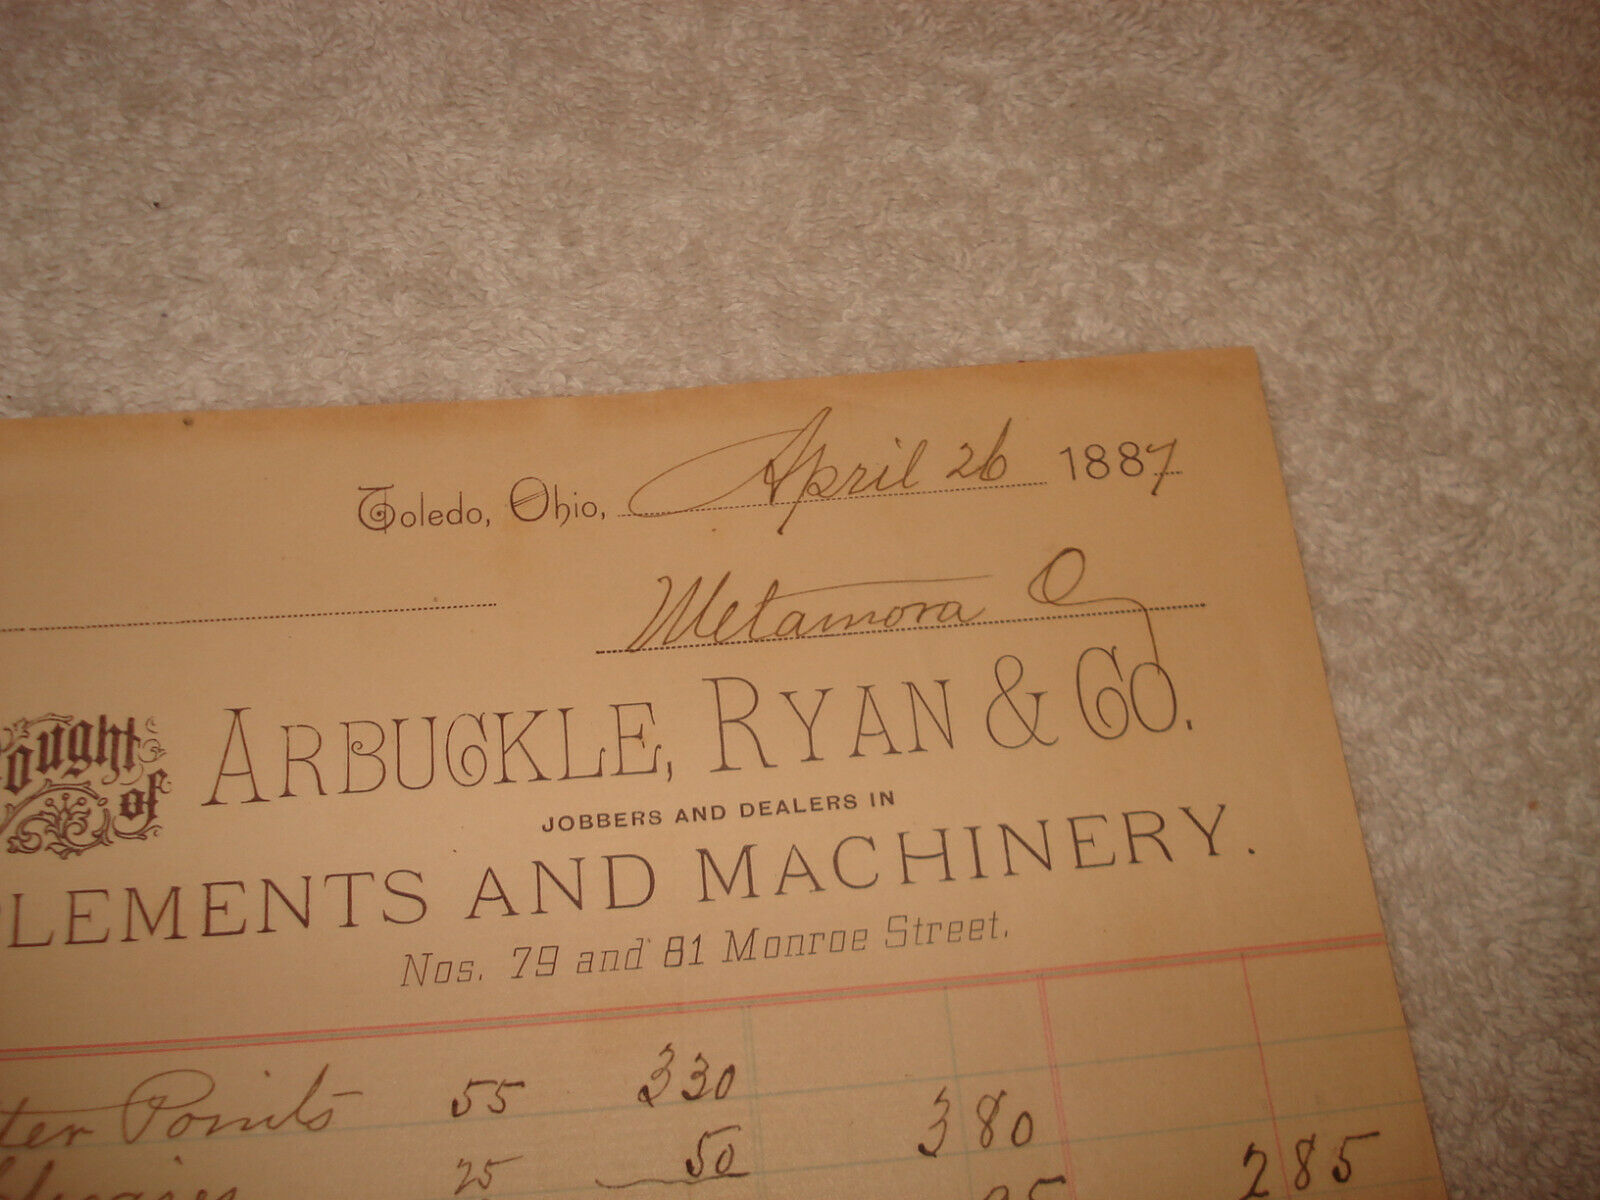 Toledo, Ohio, April 26 1887
Metamora O
ought of ARBUCKLE, RYAN & CO.
JOBBERS AND DEALERS IN
LEMENTS AND MACHINERY.
Nos. 79 and 81 Monroe Street.
ter Points 55 330
380
25 50
285